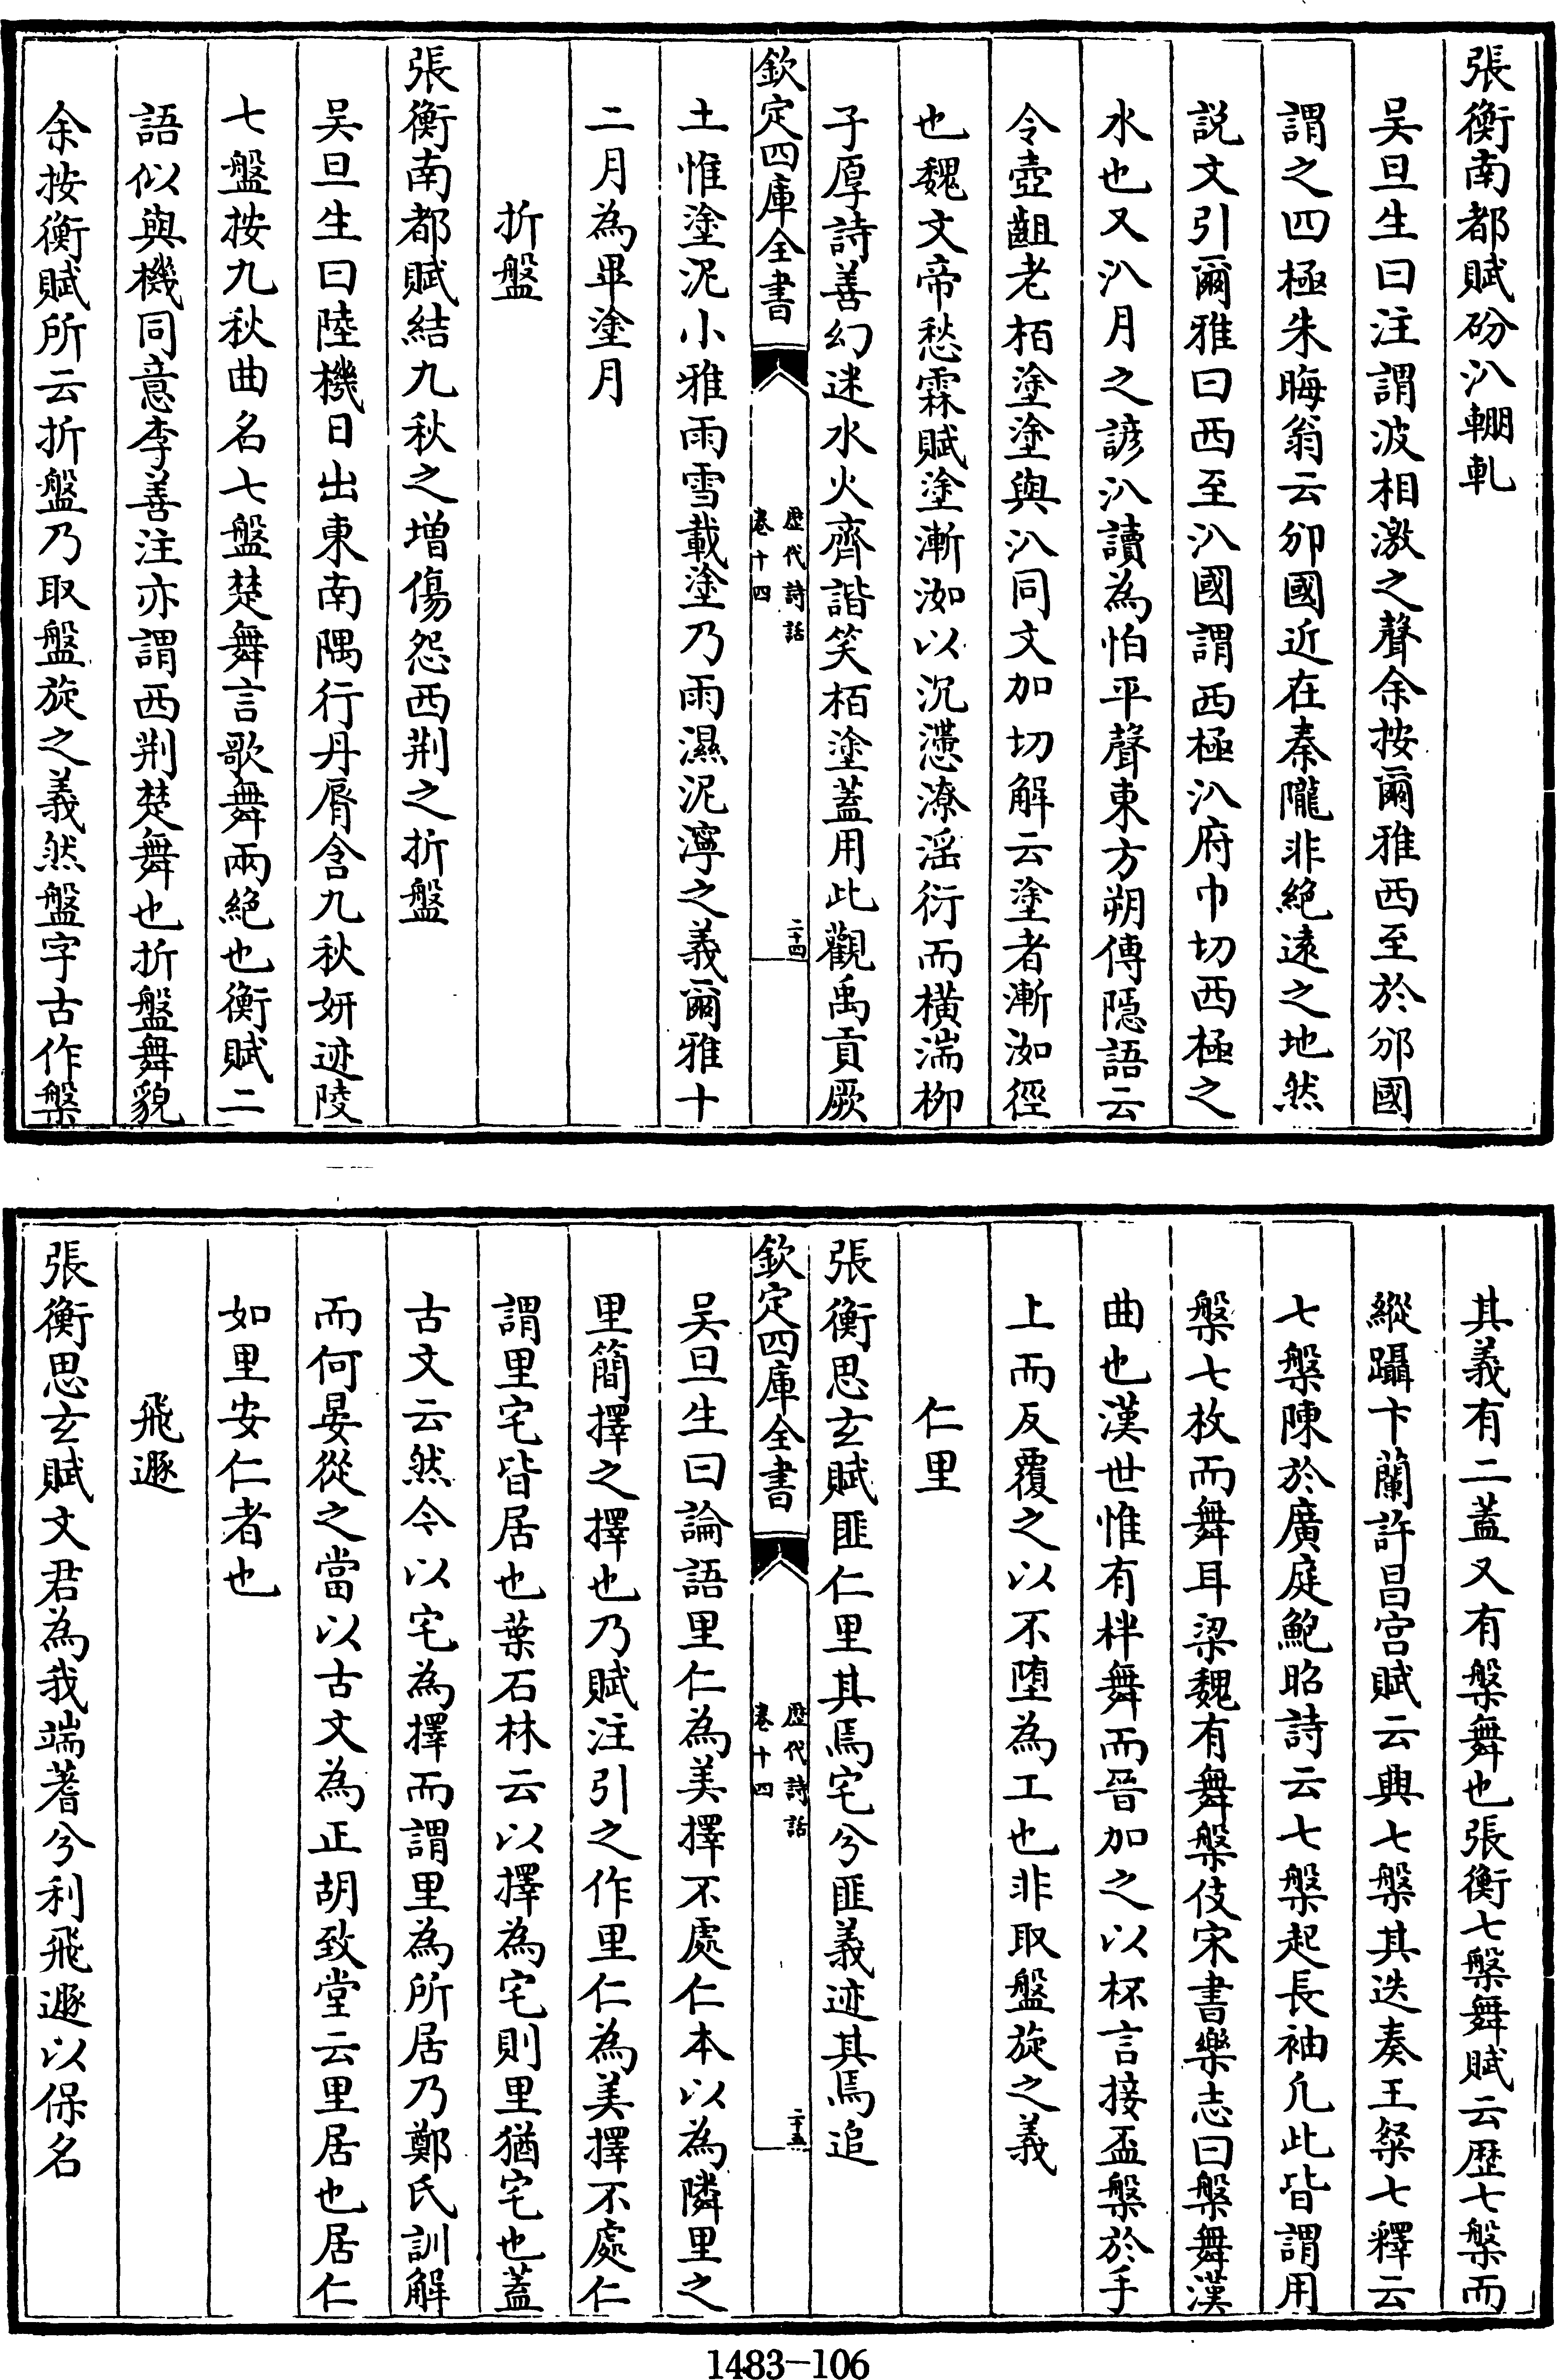 張衡南都賦砏汃輣軋
吴旦生曰注謂波相激之聲余按爾雅西至於邠國
謂之四極朱晦翁云邠國近在秦隴非絶逺之地然
説文引爾雅曰西至汃國謂西極汃府巾切西極之
水也又汃月之諺汃讀為怕平聲東方朔傳隠語云
令壺齟老栢塗塗與汃同文加切解云塗者漸洳徑
也魏文帝愁霖賦塗漸洳以沉滯潦淫衍而横湍柳
子厚詩善幻迷水火齊諧笑栢塗蓋用此觀禹貢厥
欽定四庫全書
歴代詩話
卷十四
二十四
土惟塗泥小雅雨雪載塗乃雨濕泥濘之義爾雅十
二月為畢塗月
折盤
張衡南都賦結九秋之増傷怨西荆之折盤
吴旦生曰陸機日出東南隅行丹脣含九秋妍迹陵
七盤按九秋曲名七盤楚舞言歌舞兩絶也衡賦二
語似與機同意李善注亦謂西荆楚舞也折盤舞貌
余按衡賦所云折盤乃取盤旋之義然盤字古作槃
其義有二蓋又有槃舞也張衡七槃舞賦云歴七槃而
縱躡卞蘭許昌宫賦云興七槃其迭奏王粲七釋云
七槃陳於廣庭鮑昭詩云七槃起長袖凢此皆謂用
槃七枚而舞耳梁魏有舞槃伎宋書樂志曰槃舞漢
曲也漢世惟有柈舞而晉加之以杯言接盃槃於手
上而反覆之以不墮為工也非取盤旋之義
仁里
張衡思玄賦匪仁里其焉宅兮匪義迹其焉追
欽定四庫全書
歴代詩話
卷十四
二十五
吴旦生曰論語里仁為美擇不處仁本以為隣里之
里簡擇之擇也乃賦注引之作里仁為美擇不處仁
謂里宅皆居也葉石林云以擇為宅則里猶宅也蓋
古文云然今以宅為擇而謂里為所居乃鄭氏訓解
而何晏從之當以古文為正胡致堂云里居也居仁
如里安仁者也
飛遯
張衡思玄賦文君為我端蓍兮利飛遯以保名
1483-106